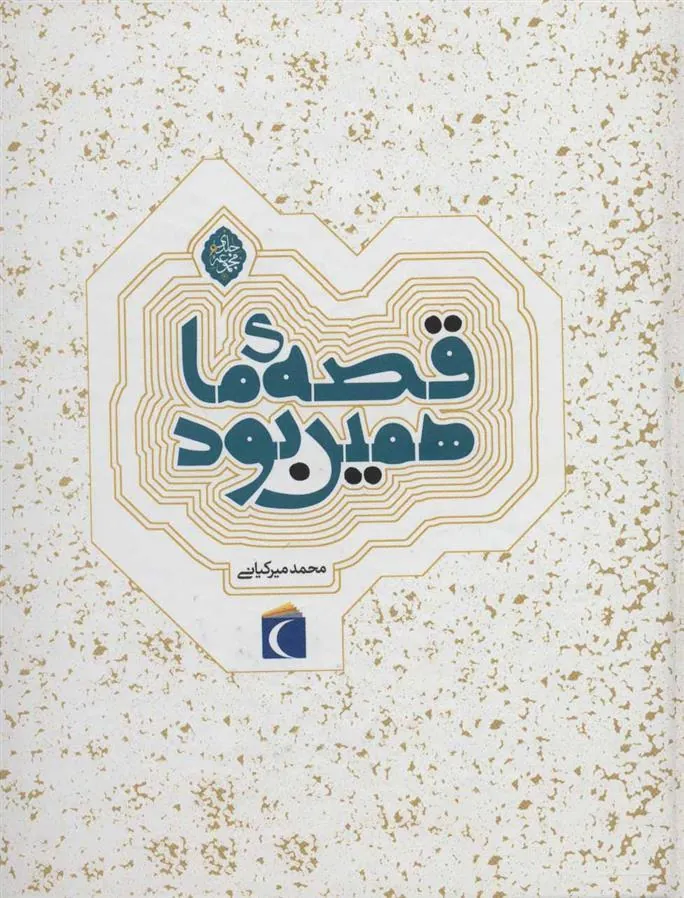 مجموعه ۶ جلدی
قصهٔ ما
همین بود
محمد میرکیانی